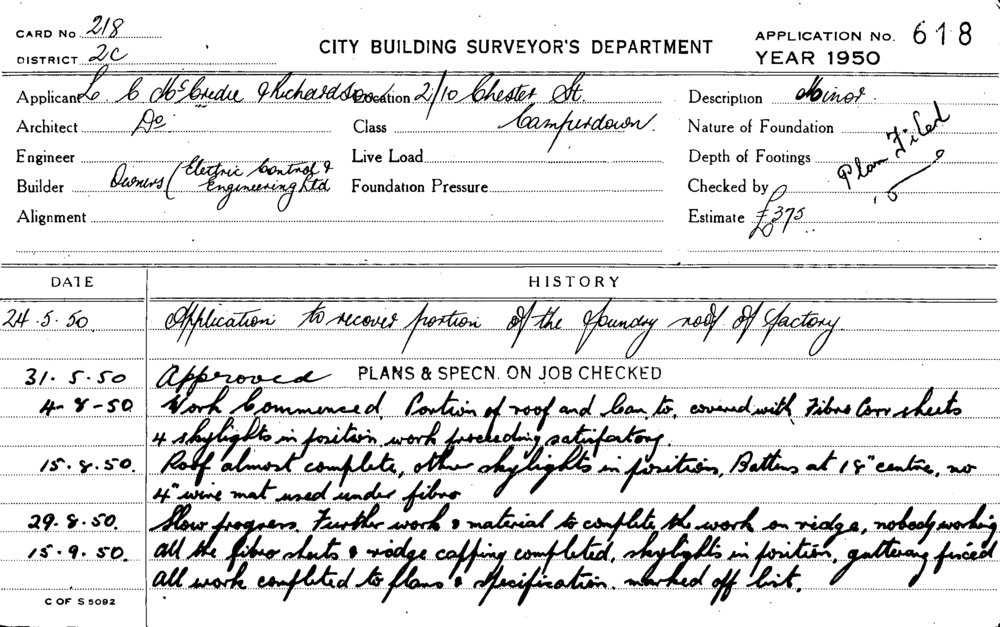 CARD No 218
DISTRICT 2C
CITY BUILDING SURVEYOR'S DEPARTMENT
APPLICATION No. 618
YEAR 1950
Applicant L. C McCredie & Richardson Location 2/10 Chester St. Description Minor.
Architect Do Class Camperdown. Nature of Foundation
Engineer Live Load Depth of Footings
Plan Filed
Builder Owners (Electric Control & Engineering Ltd Foundation Pressure Checked by
Alignment Estimate £375
DATE HISTORY
24.5.50. Application to recover portion of the foundry roof of factory.
31.5.50 Approved PLANS & SPECN. ON JOB CHECKED
4-8-50. Work Commenced, Portion of roof and lean to, covered with Fibro Corr sheets
4 skylights in position, work proceeding satisfactory.
15.8.50. Roof almost complete, other skylights in position, Battens at 18" centre, no
4" wire mat used under fibro
29.8.50. Slow progress. Further work & material to complete the work on ridge, nobody working
15.9.50. All the fibro sheets & ridge capping completed, skylights in position, guttering
all work completed to plans & specification. marked off list.
C OF S 5092